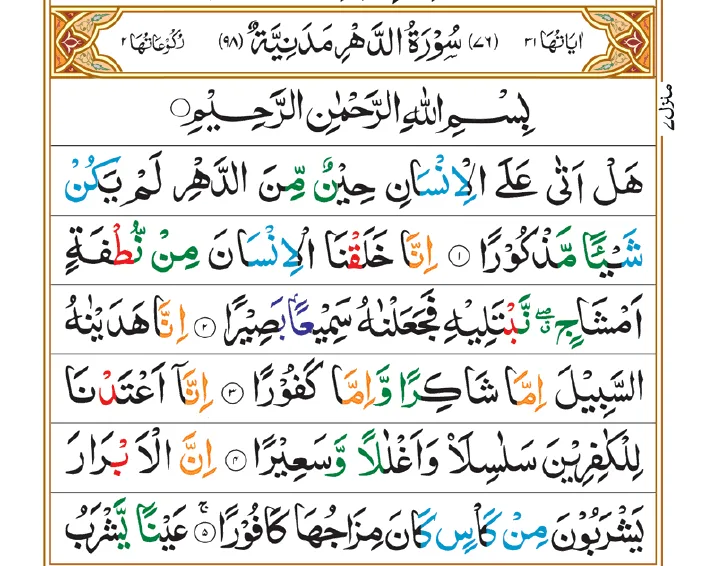 اٰیَاتُهَا ٣١ (٧٦) سُوْرَةُ الدَّهْرِ مَدَنِيَّةٌ (٩٨) رُكُوْعَاتُهَا ٢
منزل ٧
بِسْمِ اللهِ الرَّحْمٰنِ الرَّحِيْمِ
هَلْ اَتٰى عَلَى الْاِنْسَانِ حِيْنٌ مِّنَ الدَّهْرِ لَمْ يَكُنْ
شَيْـًٔا مَّذْكُوْرًا ١ اِنَّا خَلَقْنَا الْاِنْسَانَ مِنْ نُّطْفَةٍ
اَمْشَاجٍ ۖۗ نَّبْتَلِيْهِ فَجَعَلْنٰهُ سَمِيْعًۢا بَصِيْرًا ٢ اِنَّا هَدَيْنٰهُ
السَّبِيْلَ اِمَّا شَاكِرًا وَّاِمَّا كَفُوْرًا ٣ اِنَّاۤ اَعْتَدْنَا
لِلْكٰفِرِيْنَ سَلٰسِلَا۠ وَاَغْلٰلًا وَّسَعِيْرًا ٤ اِنَّ الْاَبْرَارَ
يَشْرَبُوْنَ مِنْ كَاْسٍ كَانَ مِزَاجُهَا كَافُوْرًا ٥ۚ عَيْنًا يَّشْرَبُ